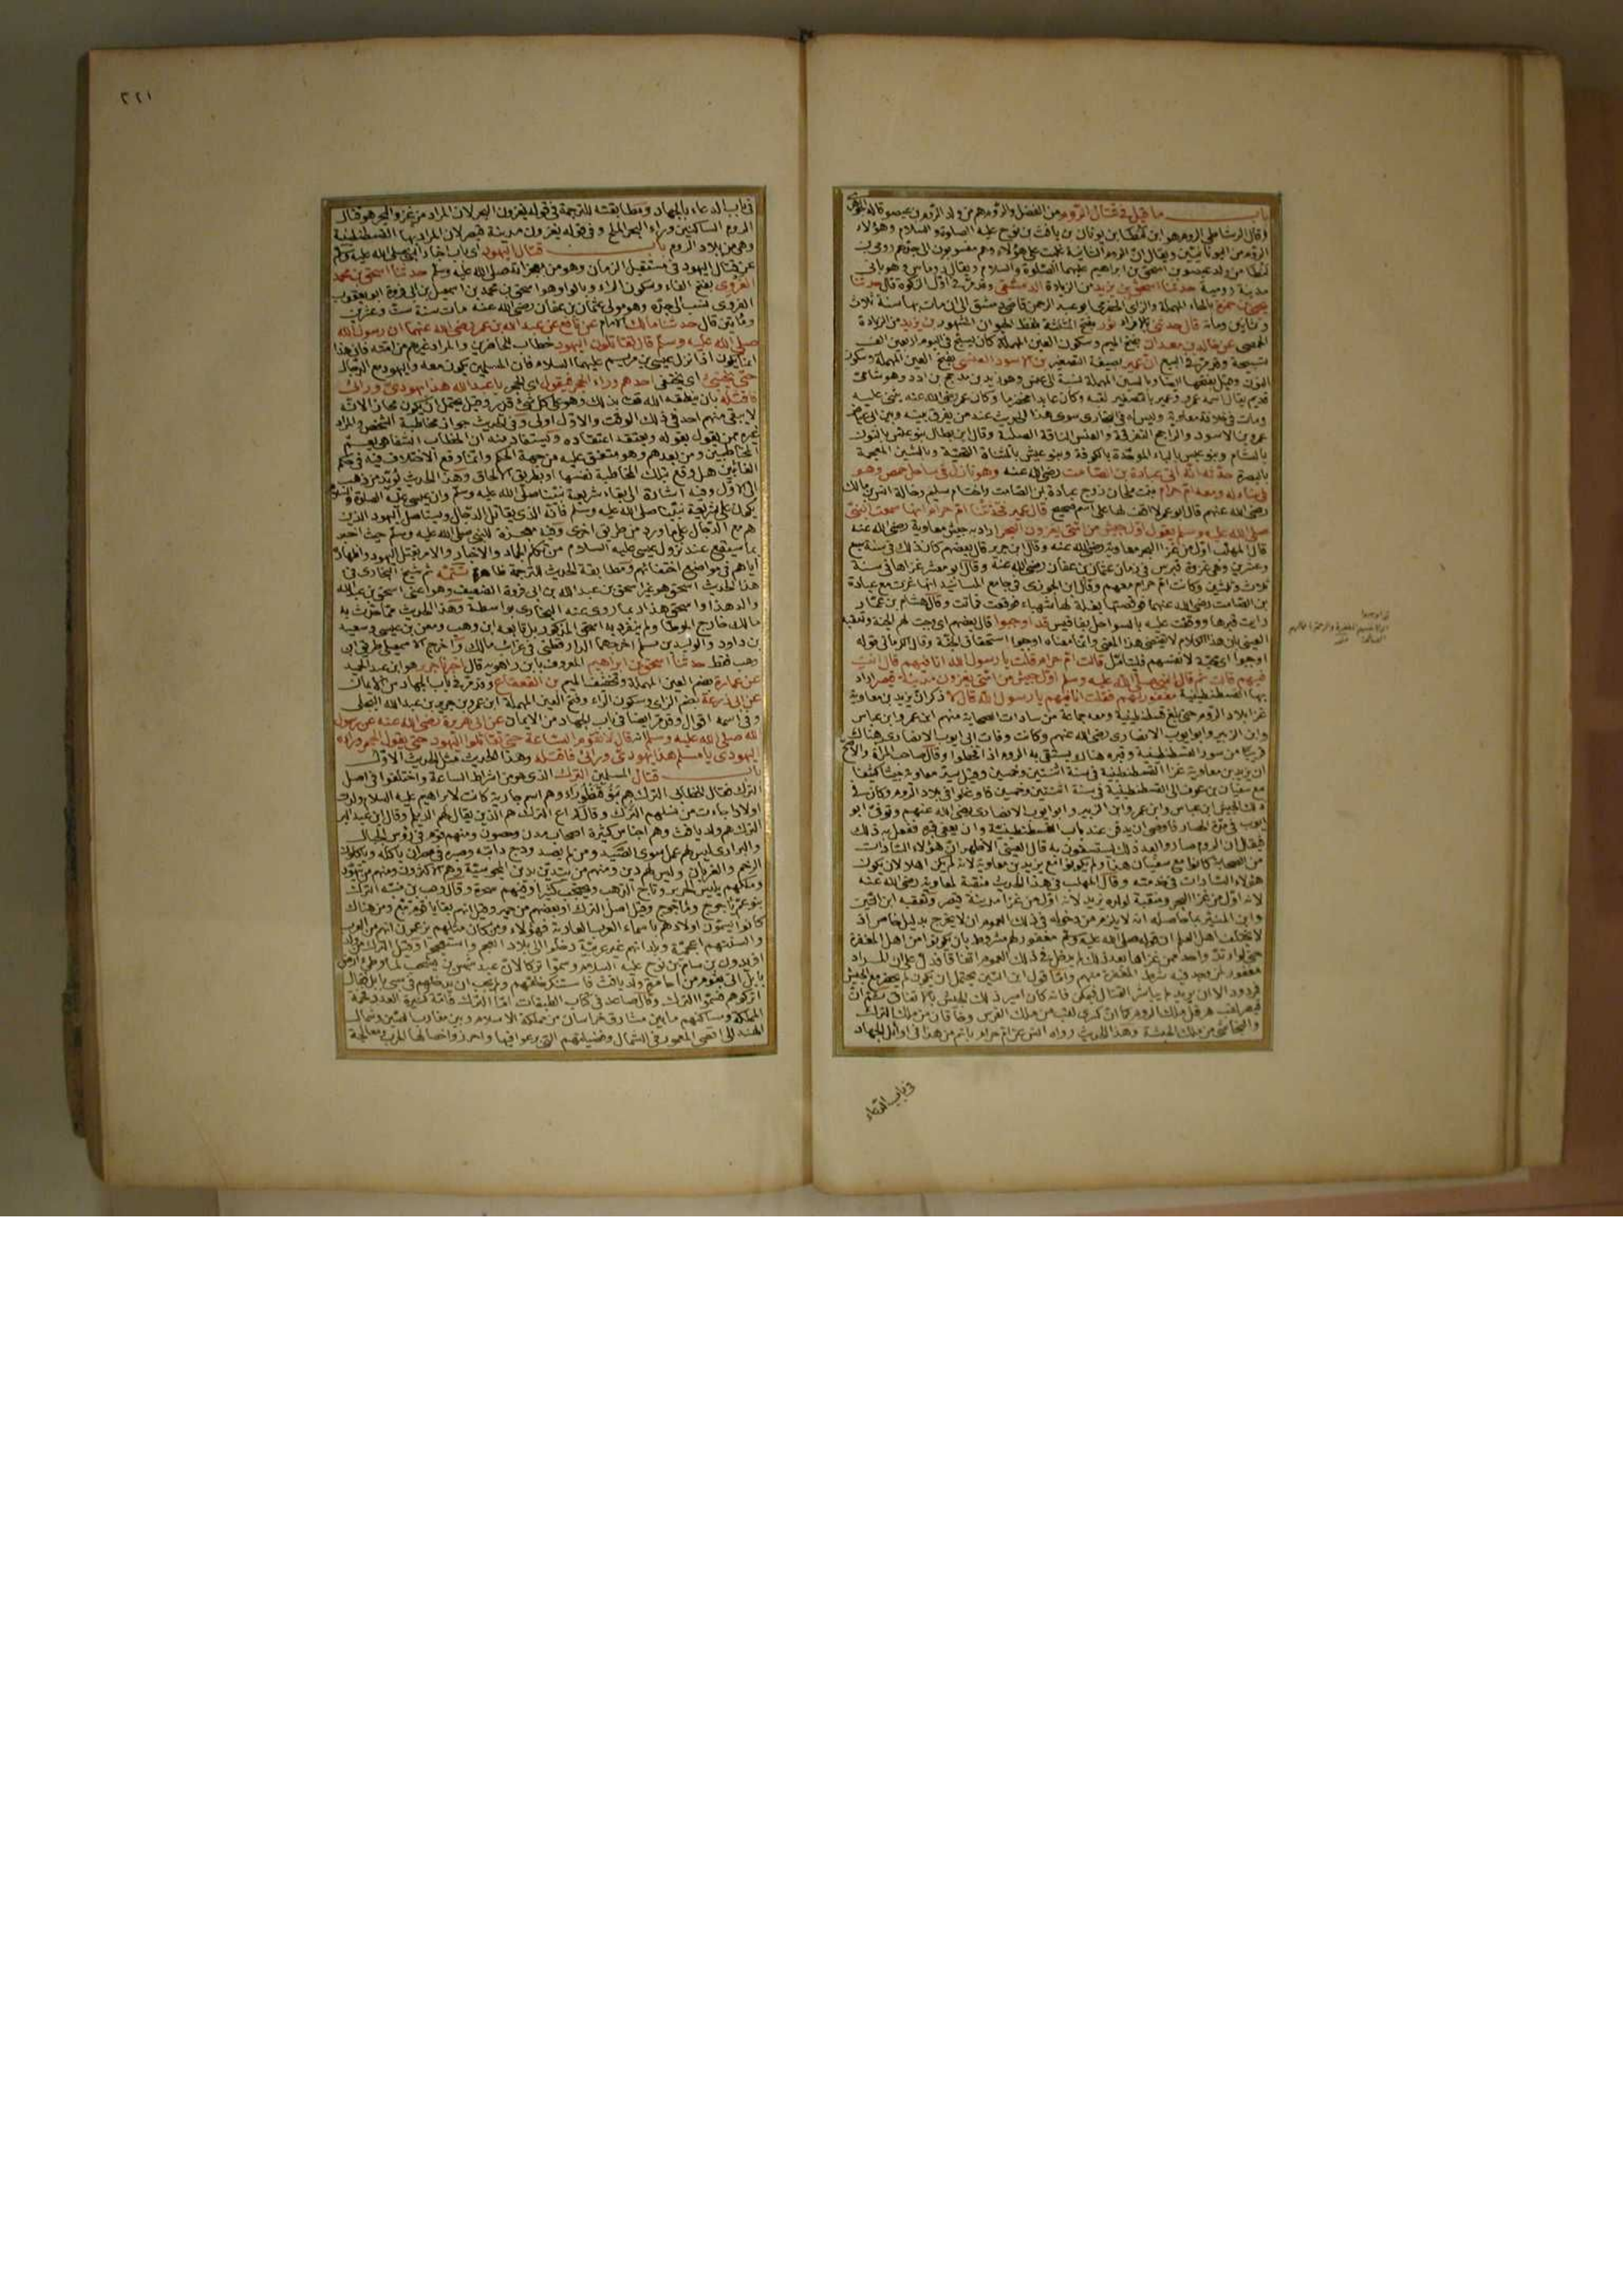 باب ما قيل في قتال الروم من الفضل والروم هم من ولد الروم بن عيصو قاله الجوهري
وقال الرشاطي الروم هو ابن لنطا بن يونان بن يافث بن نوح عليه الصلوة والسلام وهؤلاء
الروم من اليونانيين ويقال ان الروم الثانية غلبت على هؤلاء وهم منسوبون الى جدهم رومي بن
لنطا من ولد عيصو بن اسحق بن ابراهيم عليهما الصلوة والسلام ويقال روماس وهو باني
مدينة رومية حدثنا اسحق بن يزيد من الزيادة الدمشقي وقد مر في اول الزكوة قال حدثنا
يحيى بن حمزة بالحاء المهملة والزاى الحضرمي ابو عبد الرحمن قاضي دمشق الى ان مات بها سنة ثلاث
وثمانين ومائة قال حدثني بالافراد ثور بفتح المثلثة بلفظ الحيوان المشهور بن يزيد من الزيادة
الحمصي عن خالد بن معدان بفتح الميم وسكون العين المهملة كان يسبح في اليوم اربعين الف
تسبيحة وقد مر في البيع ان عمير بصيغة التصغير بن الاسود العنسي بفتح العين المهملة وسكون
النون وقيل بفتحها ايضا وبالسين المهملة نسبة الى عنس وهو زيد بن مذحج بن ادد وهو شامي
قديم يقال اسمه عمرو وعمير بالتصغير لقبه وكان عابدا مخضرما وكان عمر رضي الله عنه يثني عليه
ومات في خلافة معاوية وليس له في البخاري سوى هذا الحديث عند من يفرق بينه وبين ابي عياض
عمرو بن الاسود والراجح التفرقة والعنس الناقة الصلبة وقال ابن بطال بنو عنس بالنون
بالشام وبنو عبس بالباء الموحدة بالكوفة وبنو عيش بالمثناة التحتية وبالشين المعجمة
بالبصرة حدثه انه اتى عبادة بن الصامت رضي الله عنه وهو نازل في ساحل حمص وهو
في بناء له ومعه ام حرام بنت ملحان زوج عبادة بن الصامت واخت ام سليم وخالة انس بن مالك
رضي الله عنهم قال ابو عمر لا اقف لها على اسم صحيح قال عمير فحدثتنا ام حرام انها سمعت النبي
صلى الله عليه وسلم يقول اول جيش من امتي يغزون البحر اراد به جيش معاوية رضي الله عنه
قال المهلب اول من غزا البحر معاوية رضي الله عنه وقال ابن جرير قال بعضهم كان ذلك في سنة سبع
وعشرين وهي غزوة قبرس في زمان عثمان بن عفان رضي الله عنه وقال ابو معشر غزاها في سنة
ثلاث وثلثين وكانت ام حرام معهم وقال ابن الجوزي في جامع المسانيد انها غزت مع عبادة
بن الصامت رضي الله عنهما فوقصتها بغلة لها شهباء فوقعت فماتت وقال هشام بن عمار
رايت قبرها ووقفت عليه بالسواحل بفاقيس قد اوجبوا قال بعضهم اى وجبت لهم الجنة وتعقبه
العيني بان هذا الكلام لا يقتضي هذا المعنى وانما معناه اوجبوا استحقاق الجنة وقال الكرماني قوله
اوجبوا اى محبة لانفسهم فليتأمل قالت ام حرام قلت يا رسول الله انا فيهم قال انت
فيهم قالت ثم قال النبي صلى الله عليه وسلم اول جيش من امتي يغزون مدينة قيصر اراد
بها القسطنطينية مغفور لهم فقلت انا فيهم يا رسول الله قال لا ذكر ان يزيد بن معاوية
غزا بلاد الروم حتى بلغ قسطنطينية ومعه جماعة من سادات الصحابة منهم ابن عمر وابن عباس
وابن الزبير وابو ايوب الانصاري رضي الله عنهم وكانت وفات ابي ايوب الانصاري هناك
قريبا من سور القسطنطينية وقبره هناك يستسقي به الروم اذا قحطوا وقال صاحب المرآة والاصح
ان يزيد بن معاوية غزا القسطنطينية في سنة اثنتين وخمسين وقيل سير معاوية جيشا كثيفا
مع سفيان بن عوف الى القسطنطينية في سنة اثنتين وخمسين فاوغلوا في بلاد الروم وكان في
ذلك الجيش ابن عباس وابن عمر وابن الزبير وابو ايوب الانصاري رضي الله عنهم وتوفي ابو
ايوب في مدة الحصار فاوصى ان يدفن عند باب القسطنطينية وان يعفى قبره ففعل به ذلك
فيقال ان الروم صاروا بعد ذلك يستسقون به قال العيني الاظهر ان هؤلاء السادات
من الصحابة كانوا مع سفيان هذا ولم يكونوا مع يزيد بن معاوية لانه لم يكن اهلا لان يكون
هؤلاء السادات في خدمته وقال المهلب في هذا الحديث منقبة لمعاوية رضي الله عنه
لانه اول من غزا البحر ومنقبة لولده يزيد لانه اول من غزا مدينة قيصر وتعقبه ابن التين
وابن المنير بما حاصله انه لا يلزم من دخوله في ذلك العموم ان لا يخرج بدليل خاص اذ
لا يختلف اهل العلم ان قوله صلى الله عليه وسلم مغفور لهم مشروط بان يكونوا من اهل المغفرة
حتى لو ارتد واحد ممن غزاها بعد ذلك لم يدخل في ذلك العموم اتفاقا فدل على ان المراد
مغفور لمن وجد فيه شرط المغفرة منهم واما قول ابن التين يحتمل ان يكون لم يحضر مع الجيش
فمردود الا ان يريد لم يباشر القتال فيمكن فانه كان امير ذلك الجيش بالاتفاق
قيصر لقب هرقل ملك الروم كما ان كسرى لقب من ملك الفرس وخاقان من ملك الترك
والنجاشي من ملك الحبشة وهذا الحديث رواه انس عن ام حرام باتم من هذا في اوائل الجهاد
في باب الدعاء
٢٢١
في باب الدعاء بالجهاد ومطابقته للترجمة في قوله يغزون البحر لان المراد من غزو البحر هو قتال
الروم الساكنين وراء البحر الملح وفي قوله يغزون مدينة قيصر لان المراد بها القسطنطينية
وهي من بلاد الروم باب قتال اليهود اى باب اخبار النبي صلى الله عليه وسلم
عن قتال اليهود في مستقبل الزمان وهو من معجزاته صلى الله عليه وسلم حدثنا اسحق بن محمد
الفروي بفتح الفاء وسكون الراء وبالواو هو اسحق بن محمد بن اسمعيل بن ابي فروة ابو يعقوب
الفروي نسب الى جده وهو مولى عثمان بن عفان رضي الله عنه مات سنة ست وعشرين
ومائتين قال حدثنا مالك الامام عن نافع عن عبد الله بن عمر رضي الله عنهما ان رسول الله
صلى الله عليه وسلم قال تقاتلون اليهود خطاب للحاضرين والمراد غيرهم من امته فان هذا
انما يكون اذا نزل عيسى بن مريم عليهما السلام فان المسلمين يكون معه واليهود مع الدجال
حتى يختبئ اى يختفي احدهم وراء الحجر فيقول اى الحجر يا عبد الله هذا يهودي ورائي
فاقتله بان ينطقه الله بذلك وهو على كل شئ قدير وقيل يحتمل ان يكون مجازا لانه
لا يبقى منهم احد في ذلك الوقت والاول اولى وفي الحديث جواز مخاطبة الشخص والمراد
غيره ممن يقول بقوله ويعتقد اعتقاده ويستفاد منه ان الخطاب الشفاهي يعم
المخاطبين ومن بعدهم وهو متفق عليه من جهة الحكم وانما وقع الاختلاف فيه في حكم
الغائبين هل وقع بتلك المخاطبة نفسها او بطريق الالحاق وهذا الحديث يؤيد من ذهب
الى الاول وفيه اشارة الى بقاء شريعة نبينا صلى الله عليه وسلم وان عيسى عليه الصلوة والسلام
يكون على شريعة نبينا صلى الله عليه وسلم فانه الذي يقاتل الدجال ويستاصل اليهود الذين
هم مع الدجال على ما ورد من طريق اخرى وفيه معجزة للنبي صلى الله عليه وسلم حيث اخبر
بما سيقع عند نزول عيسى عليه السلام من تكلم الجماد والاخبار والامر بقتل اليهود واظهاره
اياهم في مواضع اختفائهم ومطابقة الحديث للترجمة ظاهرة تتمة ثم شيخ البخاري في
هذا الحديث اسحق هو غير اسحق بن عبد الله بن ابي فروة الضعيف وهو اعني اسحق بن عبد الله
والد هذا واسحق هذا ربما روى عنه البخاري بواسطة وهذا الحديث مما حدث به
مالك خارج الموطأ ولم ينفرد به اسحق المذكور بل تابعه ابن وهب ومعن بن عيسى وسعيد
بن داود والوليد بن مسلم اخرجها الدارقطني في غرائب مالك واخرج الاسمعيلي طريق ابن
وهب فقط حدثنا اسحق بن ابراهيم المعروف بابن راهويه قال اخبرنا جرير هو ابن عبد الحميد
عن عمارة بضم العين المهملة وتخفيف الميم بن القعقاع وقد مر في باب الجهاد من الايمان
عن ابي زرعة بضم الزاى وسكون الراء وفتح العين المهملة ابن عمرو بن جرير بن عبد الله البجلي
وفي اسمه اقوال وقد مر ايضا في باب الجهاد من الايمان عن ابي هريرة رضي الله عنه عن رسول
الله صلى الله عليه وسلم انه قال لا تقوم الساعة حتى تقاتلوا اليهود حتى يقول الحجر وراءه
اليهودي يا مسلم هذا يهودي ورائي فاقتله وهذا الحديث مثل الحديث الاول
باب قتال المسلمين الترك الذي هو من اشراط الساعة واختلفوا في اصل
الترك فقال الخطابي الترك هم بنو قنطوراء وهم اسم جارية كانت لابراهيم عليه السلام ولدت
اولادا جاءت من نسلهم الترك وقال كراع الترك هم الذين يقال لهم الديلم وقال ابن عبد البر
الترك هم ولد يافث وهم اجناس كثيرة اصحاب مدن وحصون ومنهم قوم في رؤس الجبال
والبراري ليس لهم عمل سوى الصيد ومن لم يصد ودج دابته وصيره في مصران ياكله وياكلون
الرخم والغربان وليس لهم دين ومنهم من يتدين بدين المجوسية وهم الاكثرون ومنهم من يتهود
وملكهم يلبس الحرير وتاج الذهب ويحتجب كثيرا وفيهم سحرة وقال وهب بن منبه الترك
بنو عم ياجوج وماجوج وقيل اصل الترك او بعضهم من حمير وقيل انهم بقايا قوم تبع ومن هناك
كانوا يسمون اولادهم باسماء العرب العاربة فهؤلاء ومن كان مثلهم يزعمون انهم من العرب
والسنتهم اعجمية وبلدانهم غير عربية دخلوا الى بلاد العجم واستعجموا وقيل الترك من ولد
افريدون بن سام بن نوح عليه السلام وسموا تركا لان عبد شمس بن يشجب لما وطئ ارض
بابل اتى بقوم من احامرة ولد يافث فاستنكر خلقهم ولم يحب ان يدخلهم في سبي بابل فقال
اتركوهم فسموا الترك وقال صاعد في كتاب الطبقات اما الترك فامة كثيرة العدد فخمة
المملكة ومساكنهم ما بين مشارق خراسان من مملكة الاسلام وبين مغارب الصين وشمال
الهند الى اقصى المعمور في الشمال وفضيلتهم التي برعوا فيها واحرزوا خصالها الحرب ومعالجة